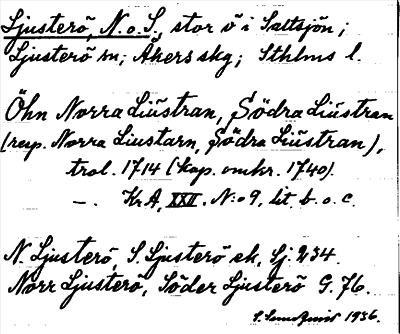 Ljusterö, N. o. S., stor ö i Saltsjön;
Ljusterö sn; Åkers skg; Sthlms l.
Öhn Norra Liústran, Södra Liústran
(resp. Norra Liustarn, Södra Liústran),
trol. 1714 (kop. omkr. 1740).
—. KrA, XXII. N:o 9, lit. b. o. c.
N. Ljusterö, S. Ljusterö ek. Sj. 234.
Norr Ljusterö, Söder Ljusterö G. 76.
1936.